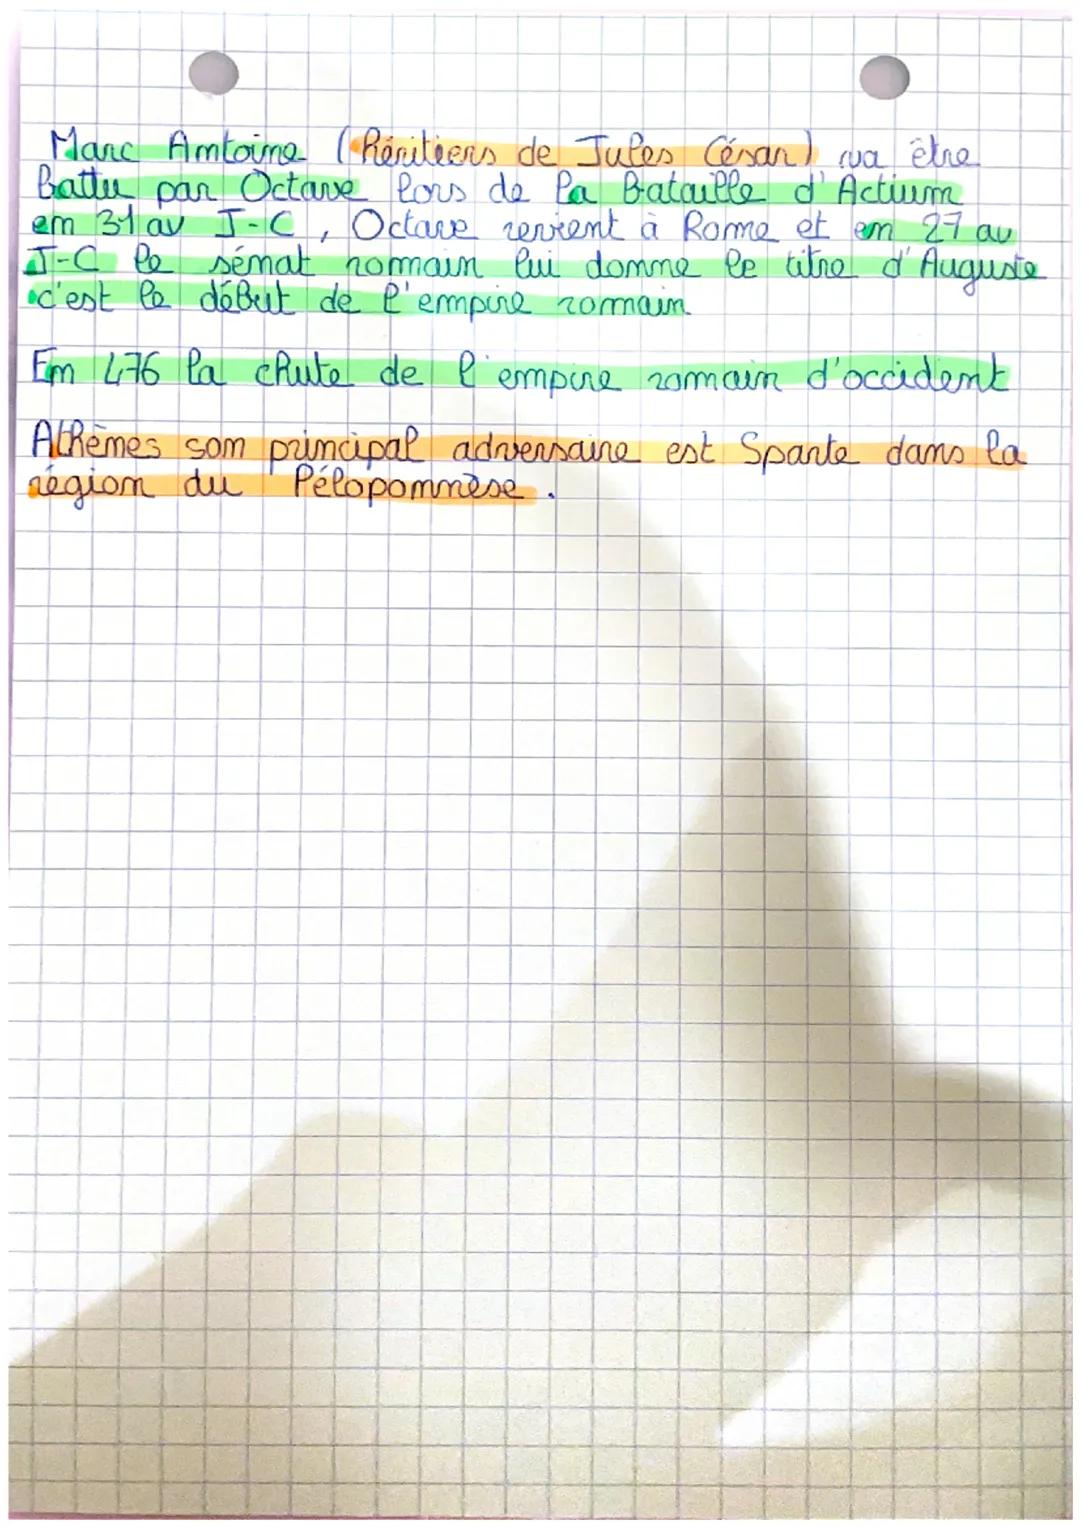 Marc Antoine (Héritiers de Jules César) va être
battu par Octave lors de la Bataille d'Actium
en 31 av J-C, Octave revient à Rome et en 27 av
J-C le sénat romain lui donne le titre d'Auguste
c'est le début de l'empire romain
En 476 la chute de l'empire romain d'occident
Athènes son principal adversaire est Sparte dans la
région du Péloponnèse.